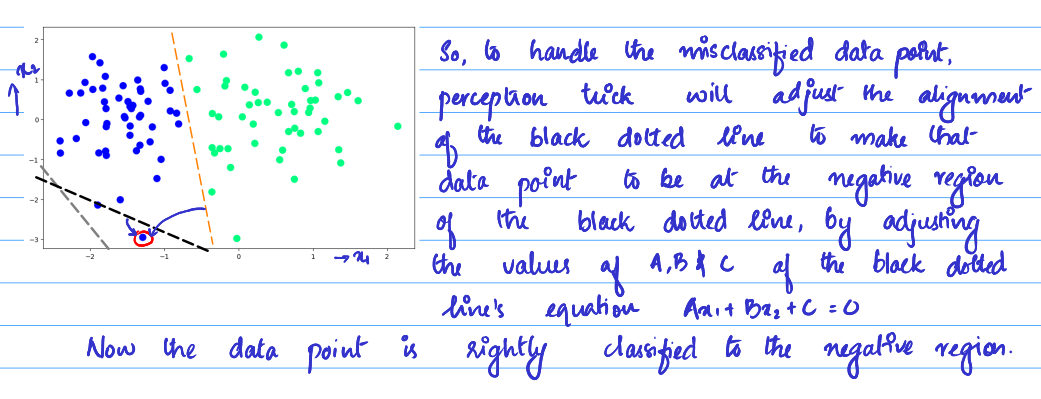 So, to handle the misclassified data point,
perception trick will adjust the alignment
of the black dotted line to make that
data point to be at the negative region
of the black dotted line, by adjusting
the values of A, B & C of the black dotted
line's equation Ax₁ + Bx₂ + C = 0
Now the data point is rightly classified to the negative region.
x₂
2
1
0
−1
−2
−3
−2
−1
0
1
2
→ x₁